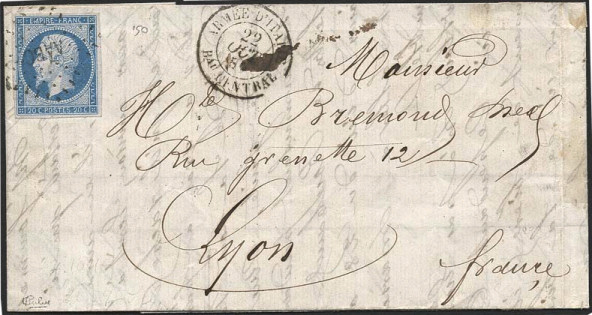 EMPIRE FRANC
20 C. POSTES 20 C.
150
ARMÉE D'ITALIE
22
Bau CENTRAL
Monsieur
Hte Bremond
Rue grenette 12
Lyon
france